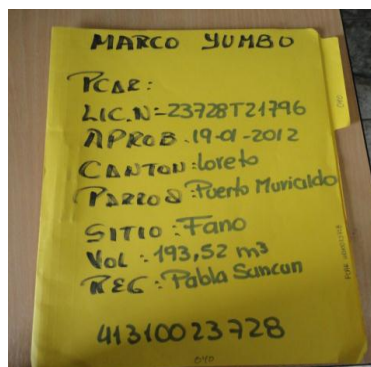 MARCO YUMBO
PCAR:
LIC.N=23728T21796
APROB.19-01-2012
CANTON:Loreto
PARROQ:Puerto Muricaldo
SITIO:Fano
VOL:193,52 m3
REG:Pabla Suncun
41310023728